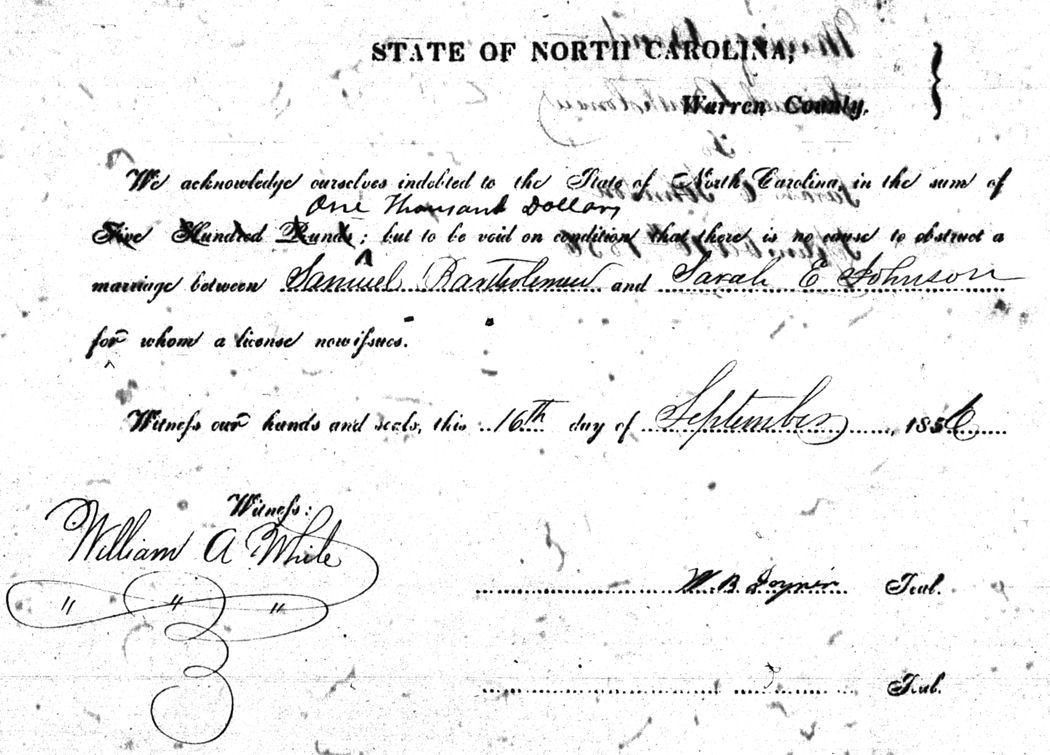 STATE OF NORTH CAROLINA,
Warren County.
We acknowledge ourselves indebted to the State of North Carolina, in the sum of
One Thousand Dollars
Five Hundred Pounds; but to be void on condition that there is no cause to obstruct a
marriage between Samuel Bartholemew and Sarah E Johnson
for whom a license now issues.
Witness our hands and seals, this 16th day of September, 1856
Witness:
William A White
W. B Joyner Seal.
Seal.